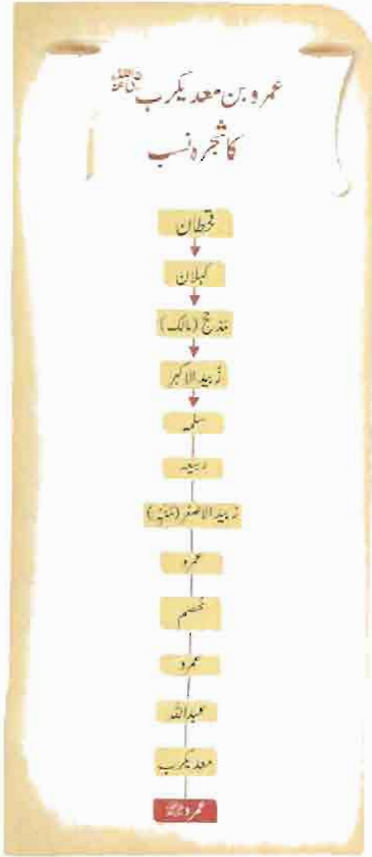 عمرو بن معدیکرب رضی اللہ عنہ
کا شجرہ نسب
قحطان
کہلان
مذحج (مالک)
زبید الاکبر
سلمہ
ربیعہ
زبید الاصغر (منبہ)
عمرو
عمرو
عبداللہ
معدیکرب
عمرو